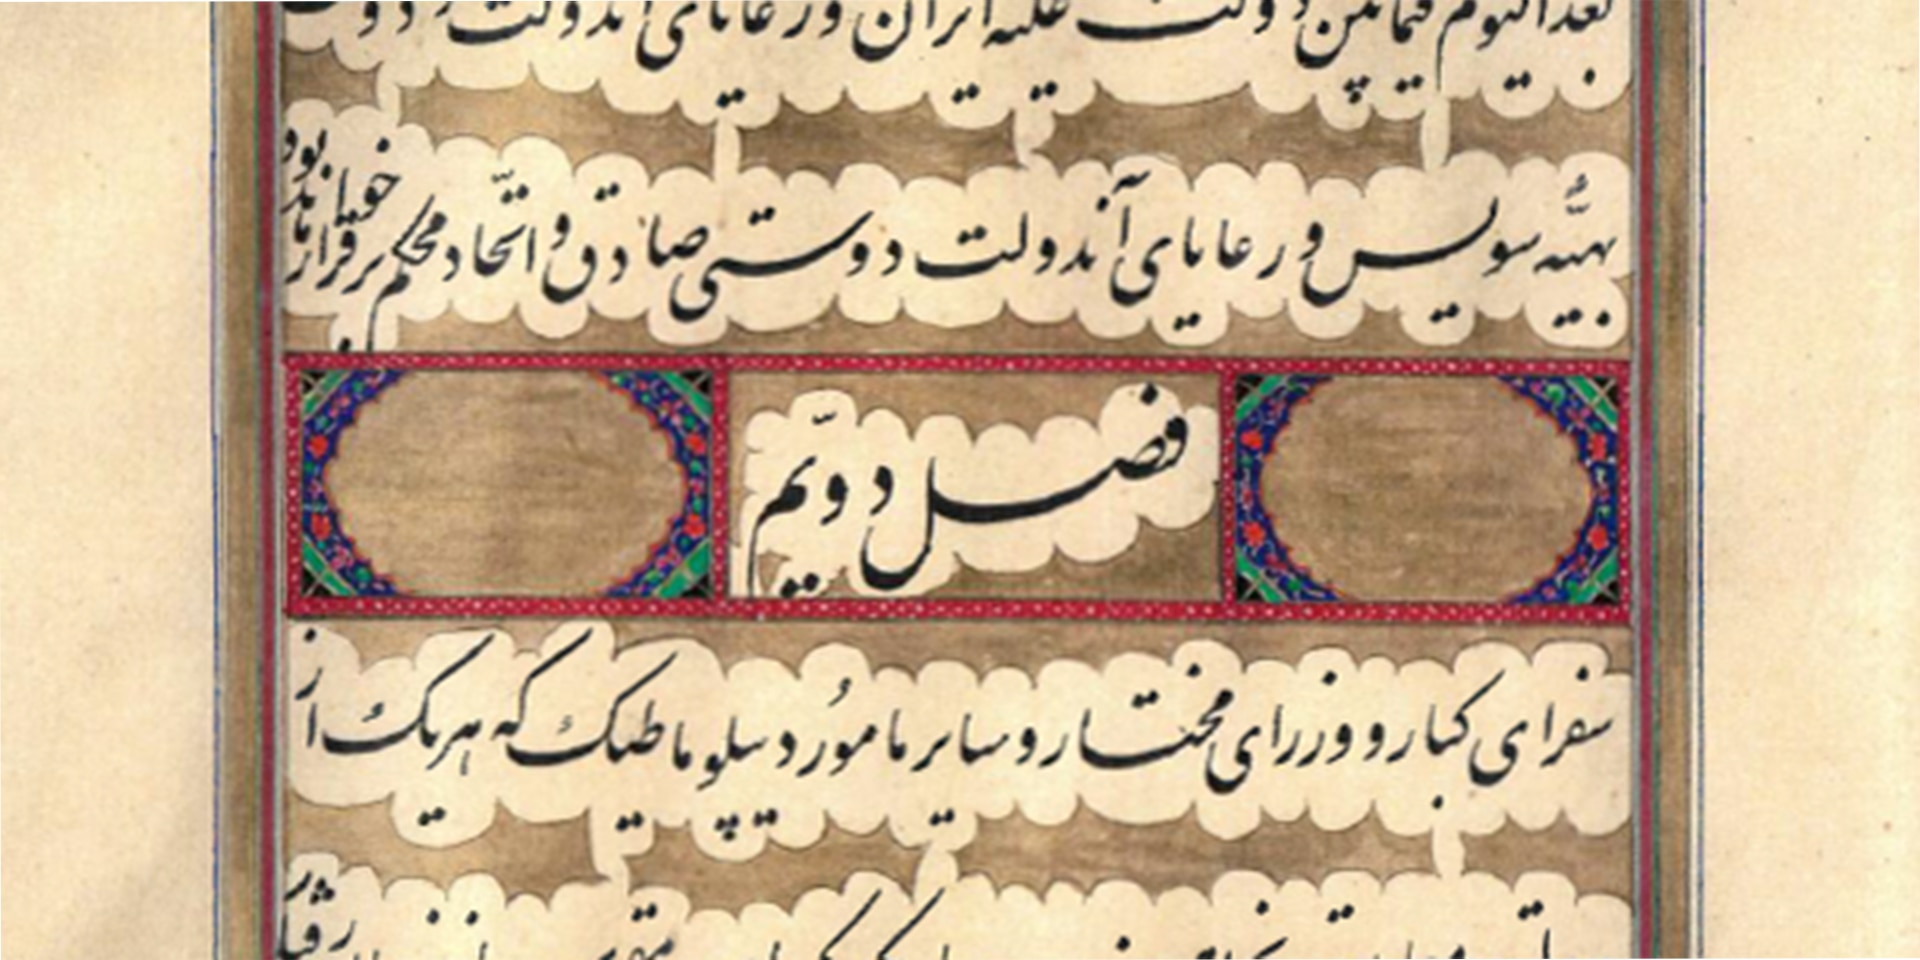 بعد الیوم فیمابین دولت علیه ایران و رعایای آندولت و دولت
بهیّه سویس و رعایای آندولت دوستی صادق و اتّحاد محکم برقرار خواهد بود
فصل دویّم
سفرای کبار و وزرای مختار و سایر مامُور دیپلوماطیک که هریک از